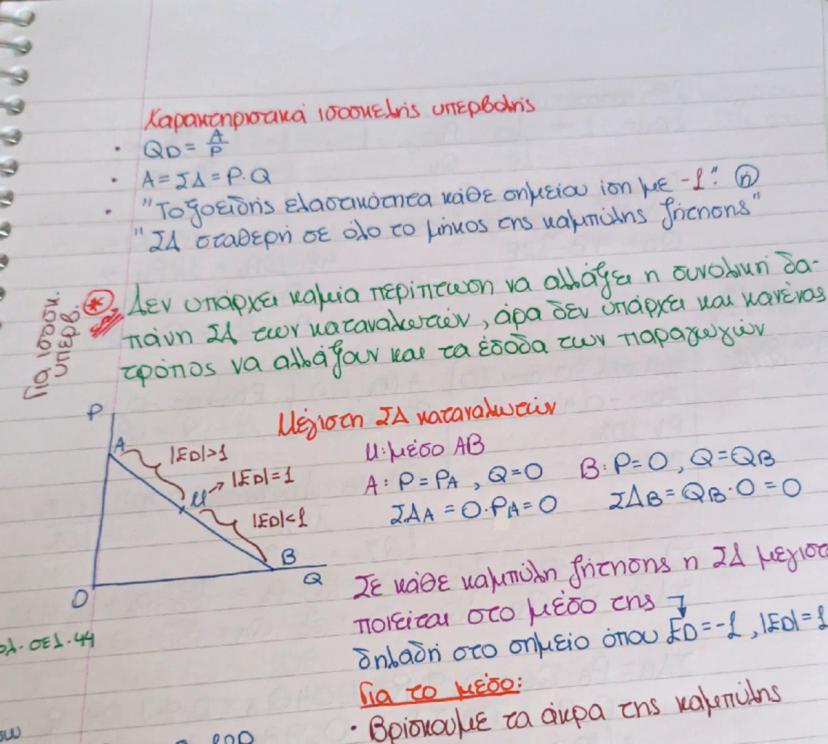 Χαρακτηριστικά ισοσκελής υπερβολής
· QD = A/P
· A = ΣΔ = P·Q
· "Τοξοειδής ελαστικότητα κάθε σημείου ίση με -1". ή
"ΣΔ σταθερή σε όλο το μήκος της καμπύλης ζήτησης"
Για ισοσκ.
υπερβ.
* Δεν υπάρχει καμία περίπτωση να αλλάξει η συνολική δα-
πάνη ΣΔ των καταναλωτών, άρα δεν υπάρχει και κανένας
τρόπος να αλλάξουν και τα έσοδα των παραγωγών
Μέγιστη ΣΔ καταναλωτών
P
A
|ED|>1
Μ → |ED|=1
|ED|<1
B
Q
O
Μ: μέσο ΑΒ
A: P=PA, Q=0
B: P=0, Q=QB
ΣΔA = 0·PA = 0
ΣΔB = QB·0 = 0
Σε κάθε καμπύλη ζήτησης η ΣΔ μεγιστο
ποιείται στο μέσο της
δηλαδή στο σημείο όπου ED=-1, |ED|=1
σελ. 44
Για το μέσο:
· Βρίσκουμε τα άκρα της καμπύλης